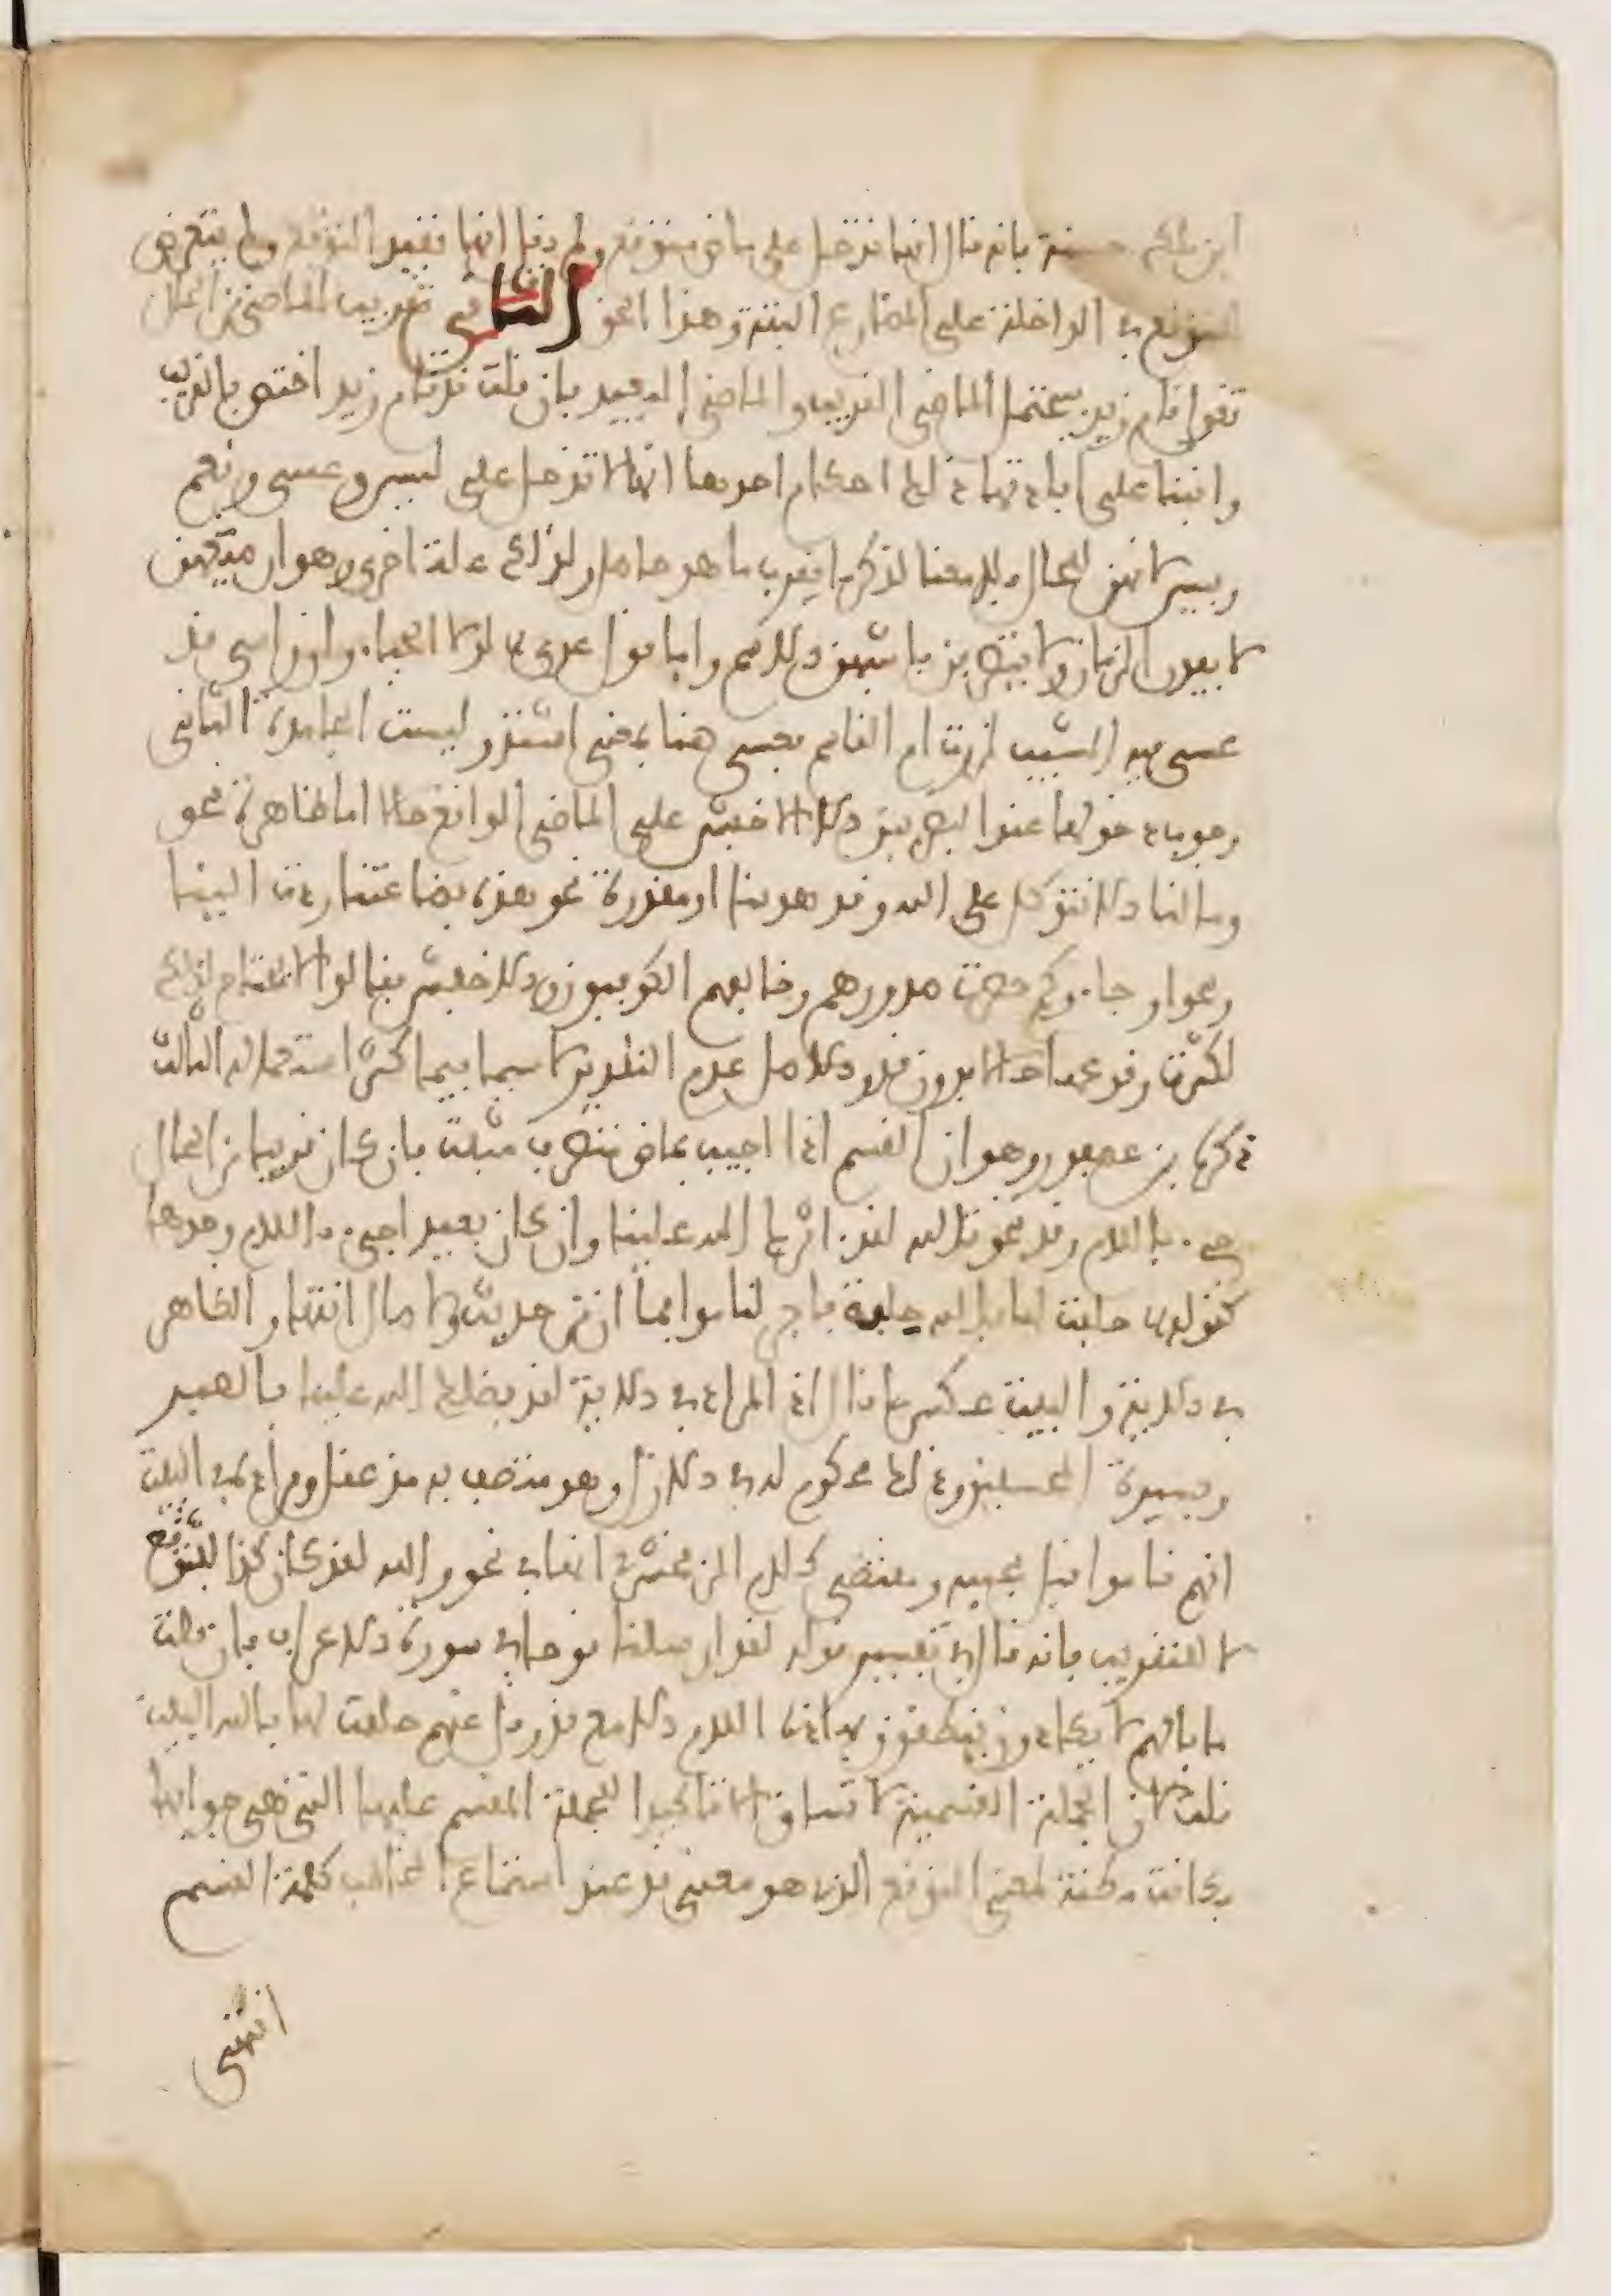 ابن مالك حسنة فإنه قال انها تدخل على ماض متوقع ولم يقل انها تفيد التوقع ولم يتعرض
للتوقع في الداخلة على المضارع البتة وهذا الحق الثاني تقريب الماضي من الحال
تقول قام زيد يحتمل الماضي القريب والماضي البعيد فان قلت قد قام زيد اختص بالقريب
وانبنا على افادتها ذلك احكام احدها انها لا تدخل على ليس وعسى ونعم
وبيس لانهن للحال فلا معنا لذكر ما يقرب ما هو حاصل ولذلك علة اخرى وهو ان صيغهن
لا يفدن الزمان ولا يتصرفن فاشبهن الاسم واما قول عدي لولا الحياء وان راسي قد
عسى فيه المشيب لزرت ام القاسم فعسى هنا بمعنى اشتد وليست الجامدة الثاني
وجوب دخولها عند البصريين الا الاخفش على الماضي الواقع حالا اما ظاهرة نحو
وما لنا الا نتوكل على الله وقد هدينا او مقدرة نحو هذه بضاعتنا ردت الينا
ونحو او جاءوكم حصرت صدورهم وخالفهم الكوفيون والاخفش فقالوا لا تحتاج لذلك
لكثرت وقوعها حالا بدون قد والاصل عدم التقدير لا سيما فيما كثر استعماله الثالث
ذكره ابن عصفور وهو ان القسم اذا اجيب بماض متصرف مثبت فان كان قريبا من الحال
جيء باللام وقد نحو تالله لقد اثرك الله علينا وان كان بعيدا جيء باللام وحدها
كقوله حلفت لها بالله حلفة فاجر لناموا فما ان من حديث ولا صال انتها والظاهر
في الاية والبيت عكس ما قال اذ المراد في الاية لقد فضلك الله علينا بالصبر
وسيرة المحسنين وذلك محكوم له في الازل وهو متصف به مذ عقل والمراد في البيت
انهم ناموا قبل مجييه ومقتضى كلام الزمخشري انها في نحو والله لقد كان كذا للتوقع
لا للتقريب فانه قال في تفسير قوله لقد ارسلنا نوحا في سورة الاعراف فان قلت
ما بالهم لا يكادون ينطقون بهاذه اللام الا مع قد وقل عنهم حلفت لها بالله البيت
قلت لان الجملة القسمية لا تساق الا تاكيدا للجملة المقسم عليها التي هي جوابها
فكانت مظنة لمعنى التوقع الذي هو معنى قد عند استماع المخاطب كلمة القسم
انتهى